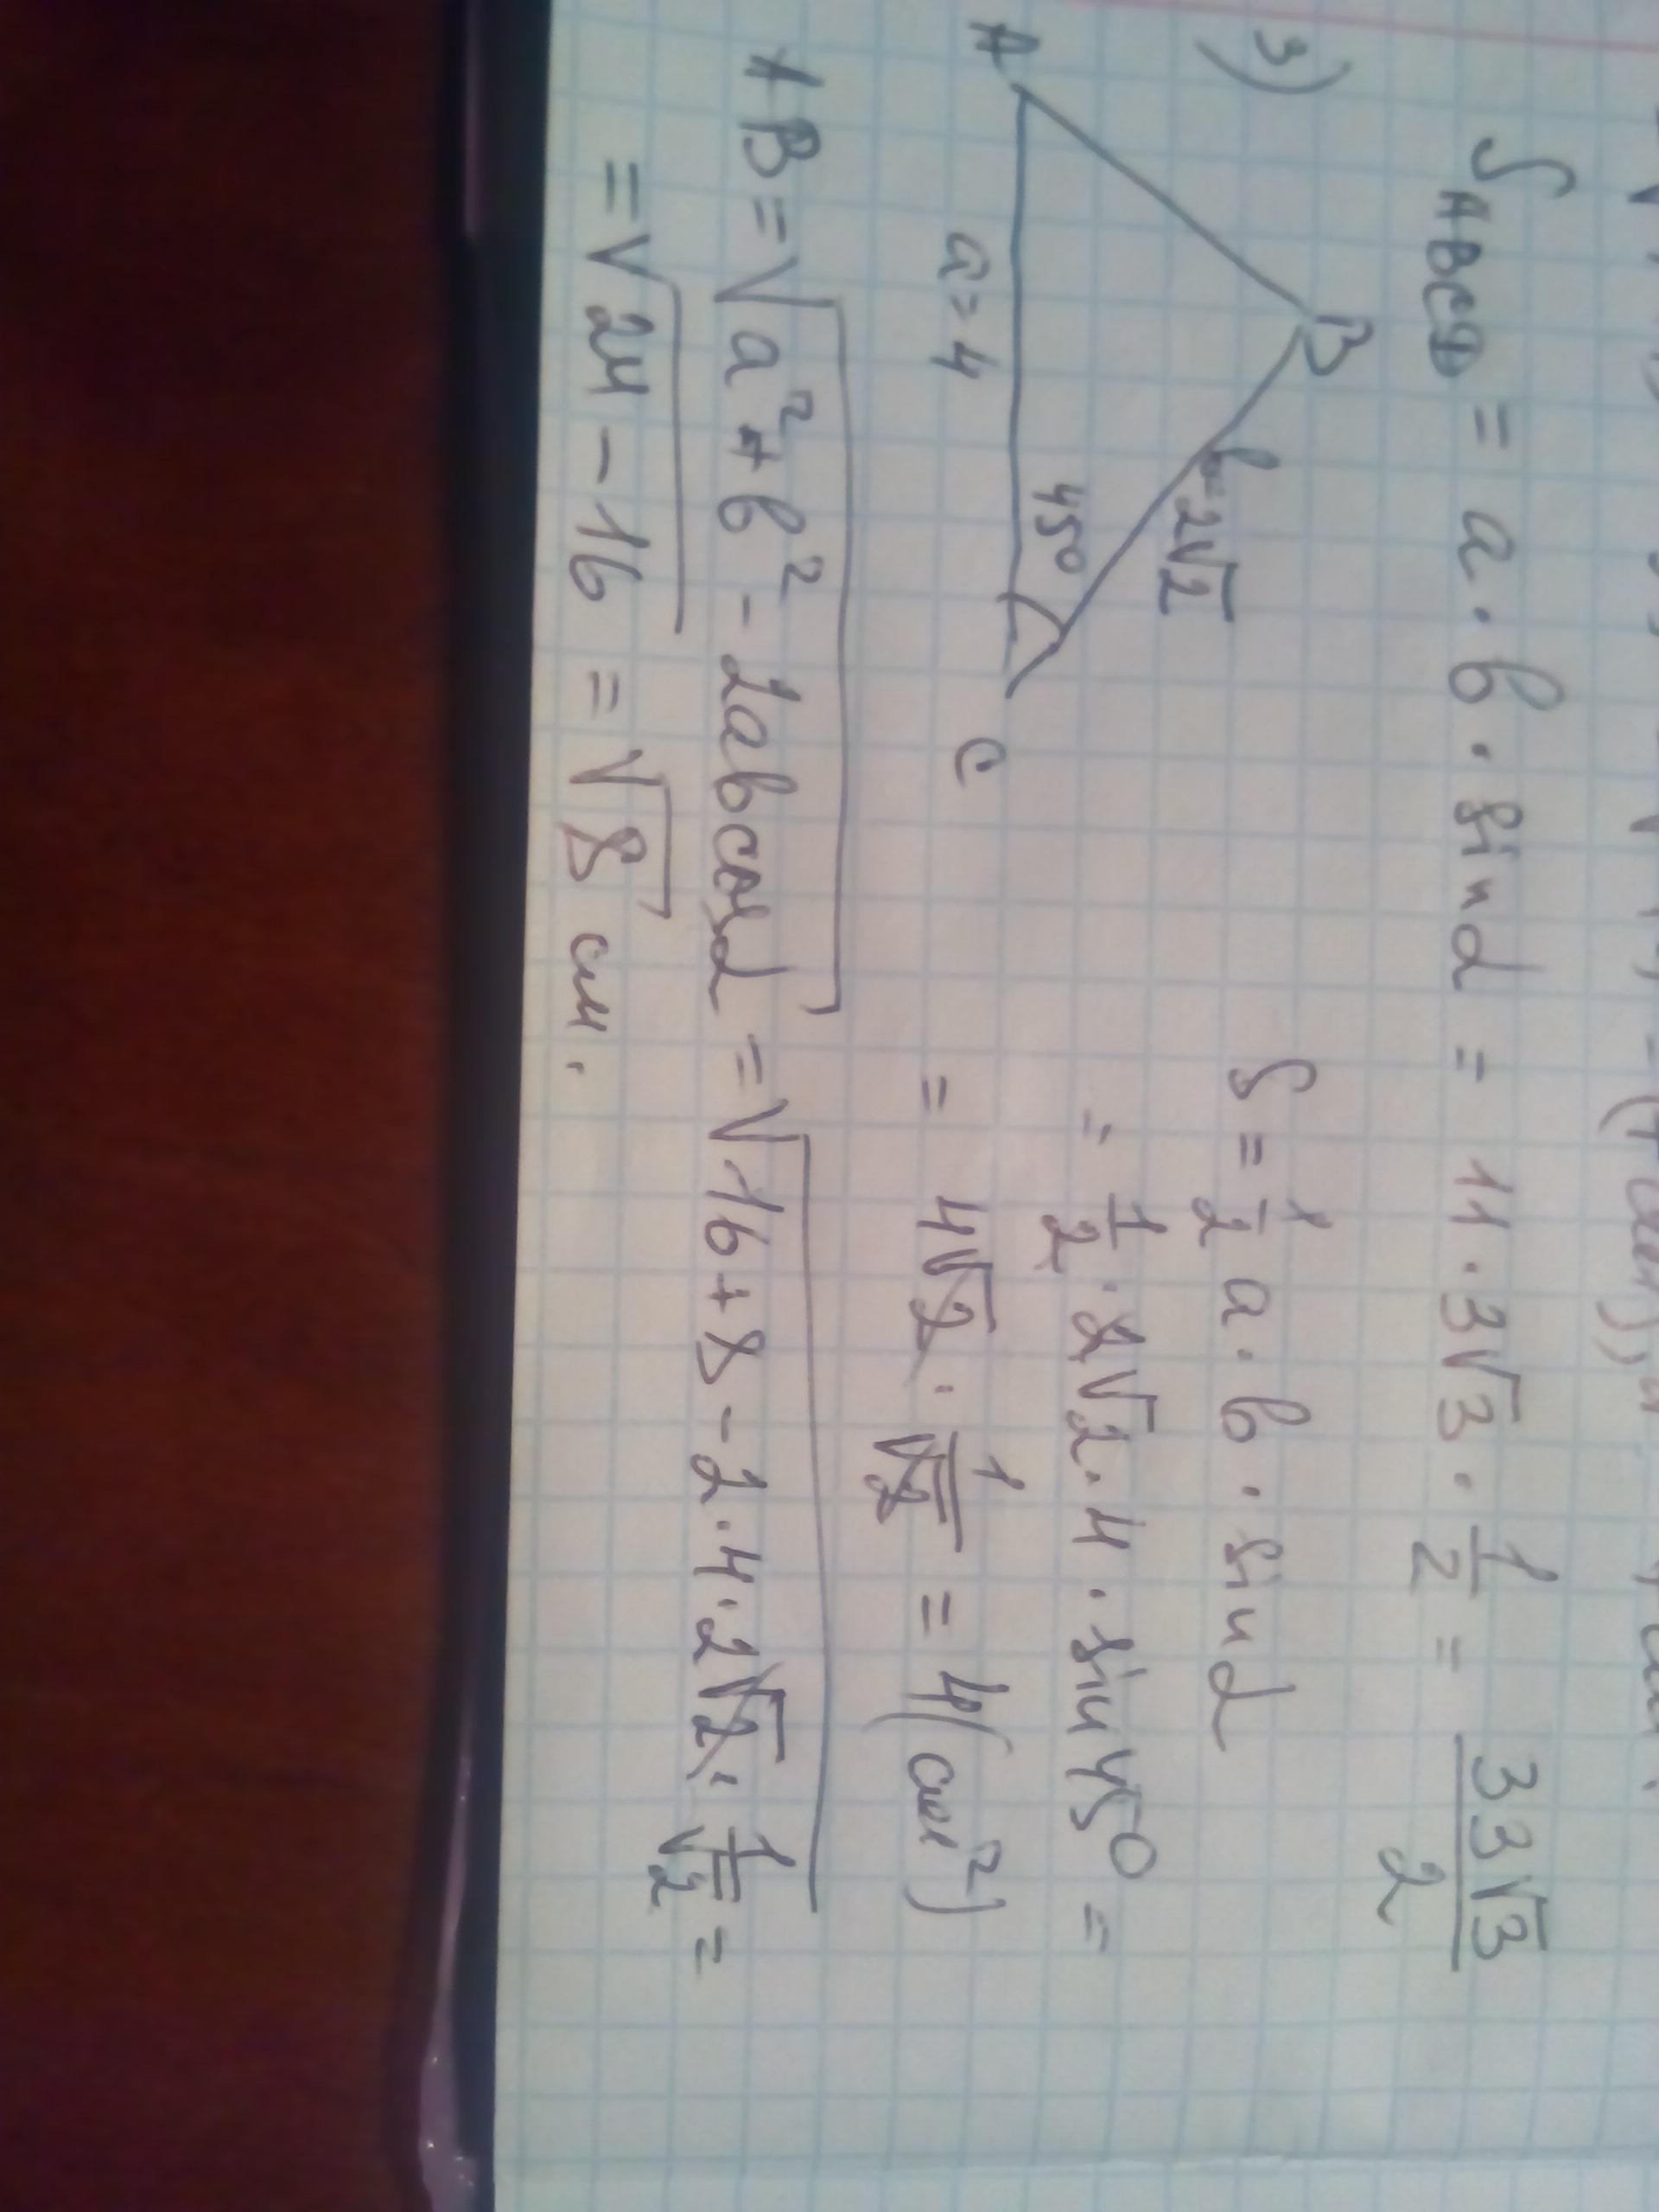 S_ABCD = a · b · sin α = 11 · 3√3 · 1/2 = 33√3/2
3)
B
b=2√2
45°
A
a=4
C
S = 1/2 a · b · sin α
= 1/2 · 2√2 · 4 · sin 45° =
= 4√2 · 1/√2 = 4 (см²)
AB = √(a² + b² - 2abcosα) = √(16 + 8 - 2 · 4 · 2√2 · 1/√2) =
= √(24 - 16) = √8 см.